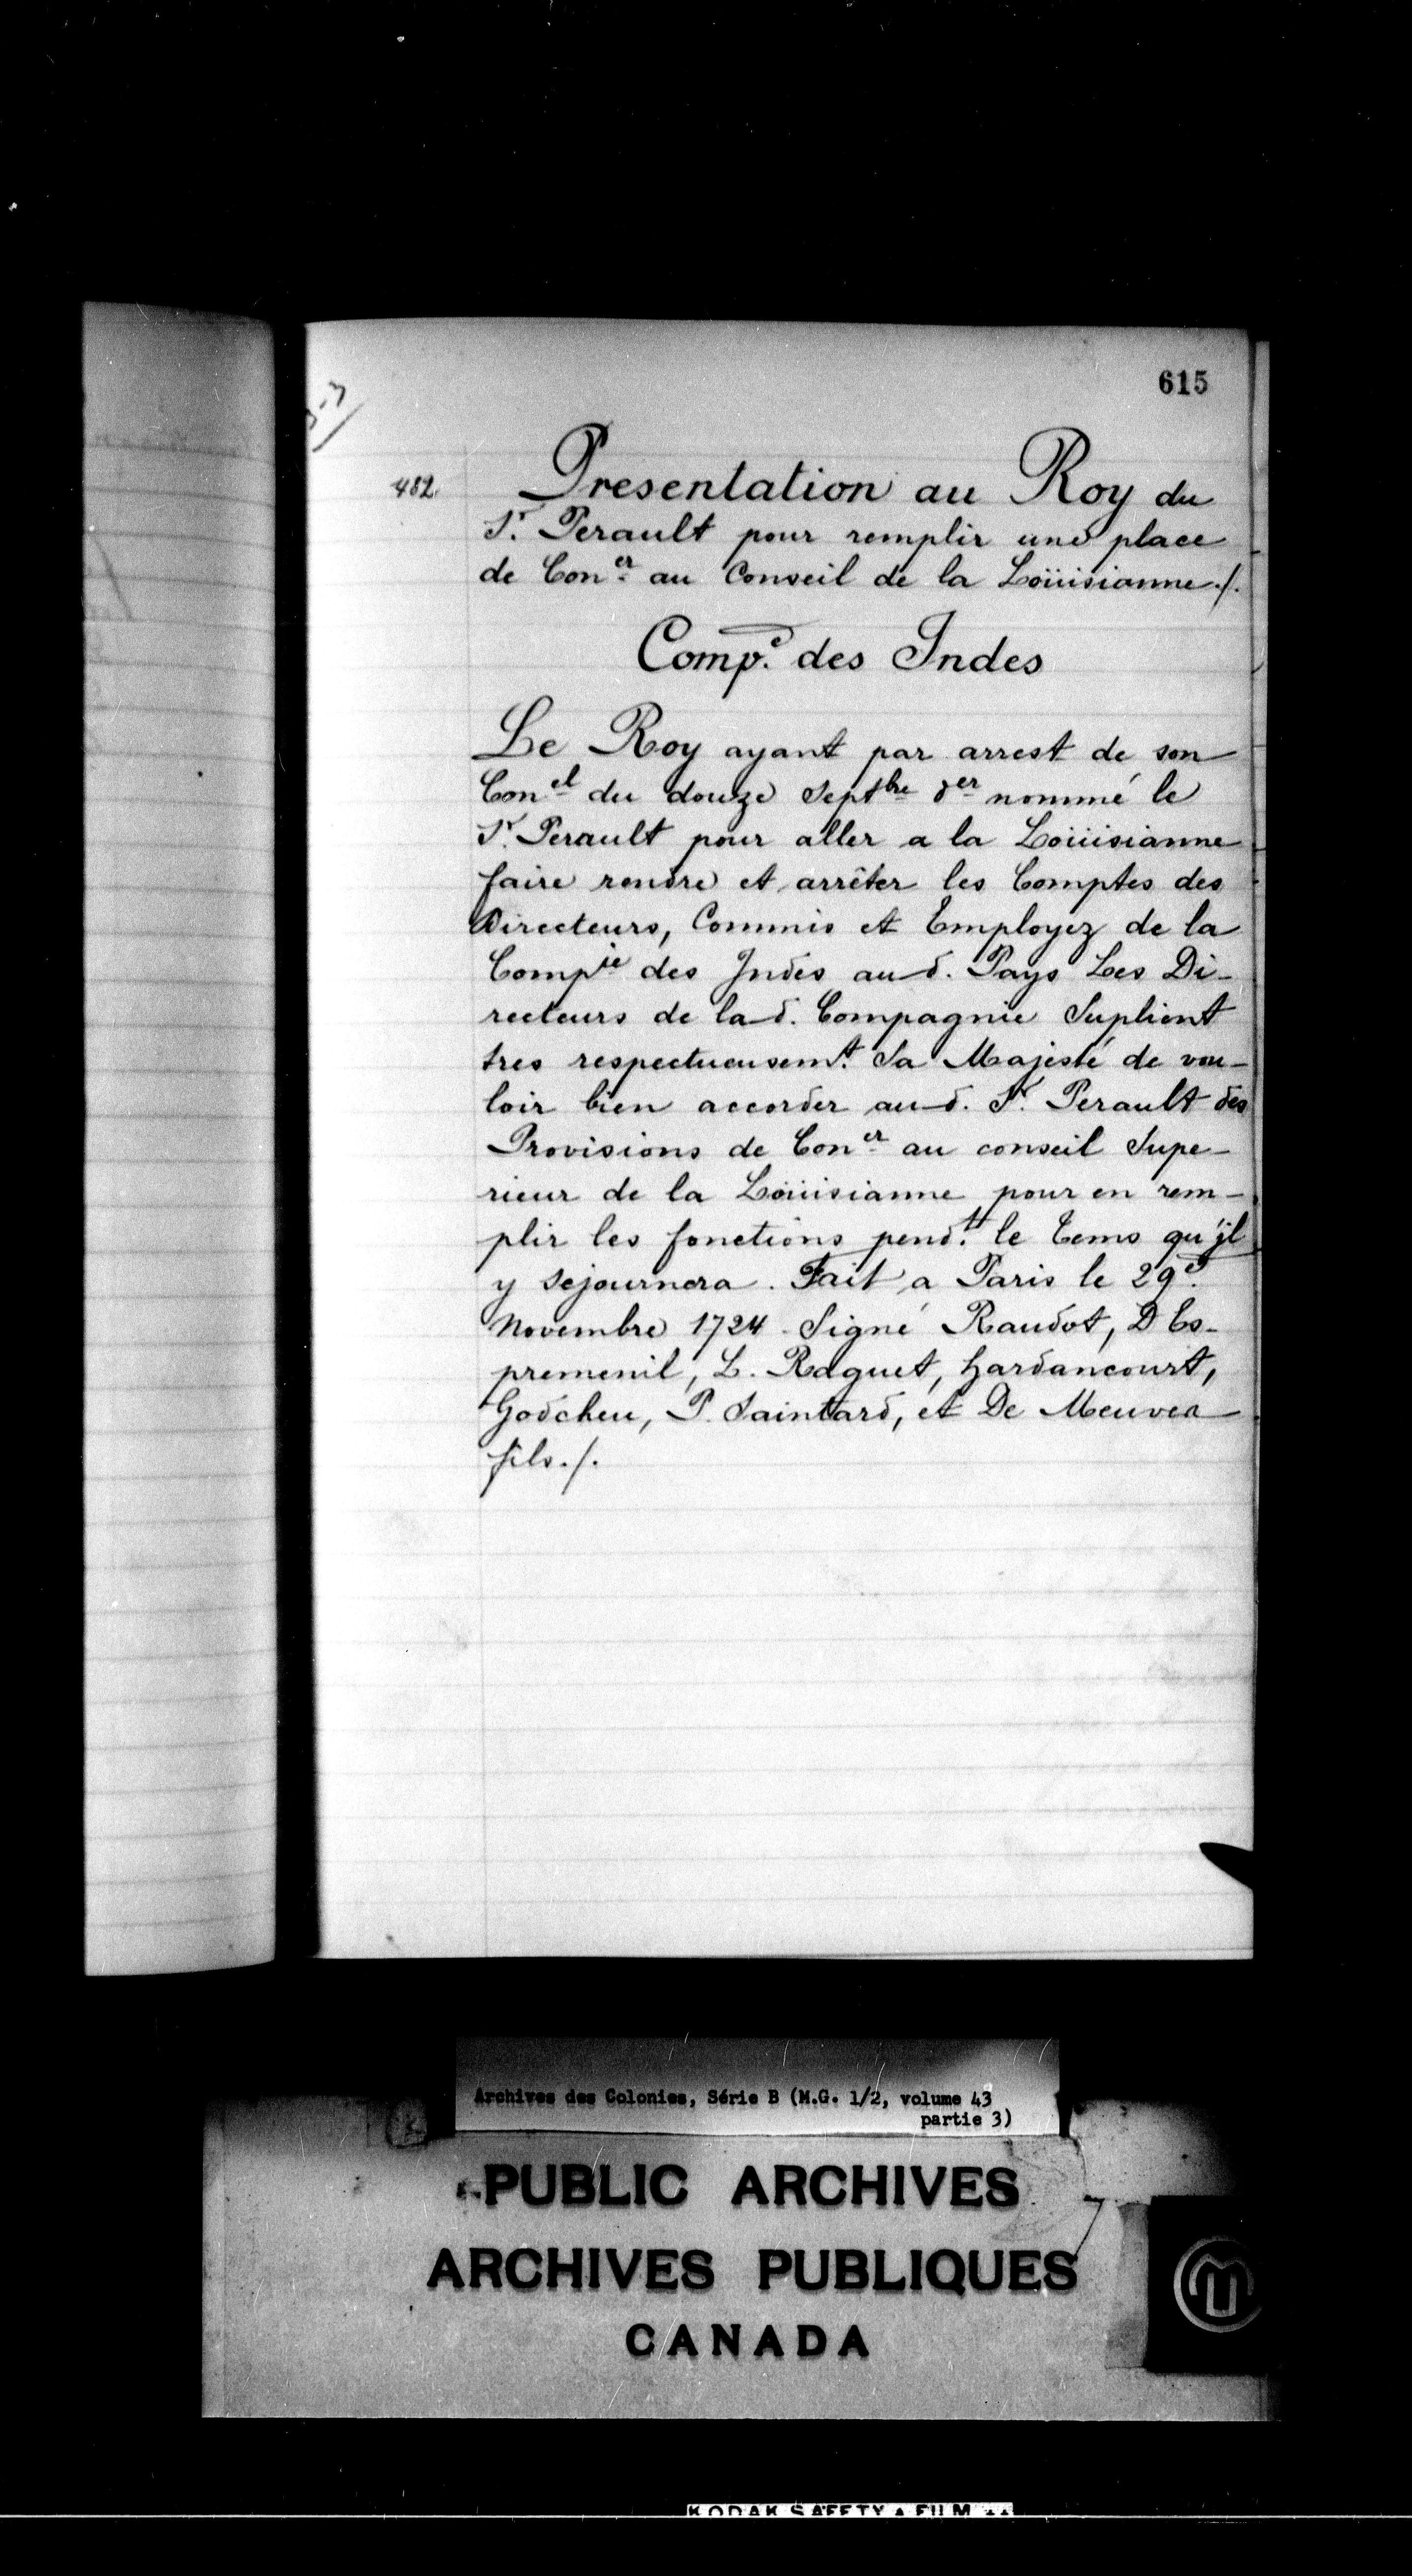 615
482.
Presentation au Roy du
Sr. Perault pour remplir une place
de Coner au Conseil de la Loüisianne./.
Compe. des Indes
Le Roy ayant par arrest de son
Conel du douze Septbre der nommé le
Sr. Perault pour aller a la Loüisianne
faire rendre et arrêter les Comptes des
Directeurs, Commis et Employez de la
Compie des Indes aud. Pays Les Di-
recteurs de lad. Compagnie Suplient
tres respectueusemt. Sa Majesté de vou-
loir bien accorder aud. Sr. Perault des
Provisions de Coner au conseil Supe-
rieur de la Loüisianne pour en rem-
plir les fonctions pendt. le tems qu'jl
y sejournera. Fait a Paris le 29e.
Novembre 1724. Signé Raudot, D Es-
premenil, L. Raguet, hardancourt,
Godcheu, P. Saintard, et De Meuvea
fils./.
Archives des Colonies, Série B (M.G. 1/2, volume 43
partie 3)
PUBLIC ARCHIVES
ARCHIVES PUBLIQUES
CANADA
KODAK SAFETY ▲ FILM